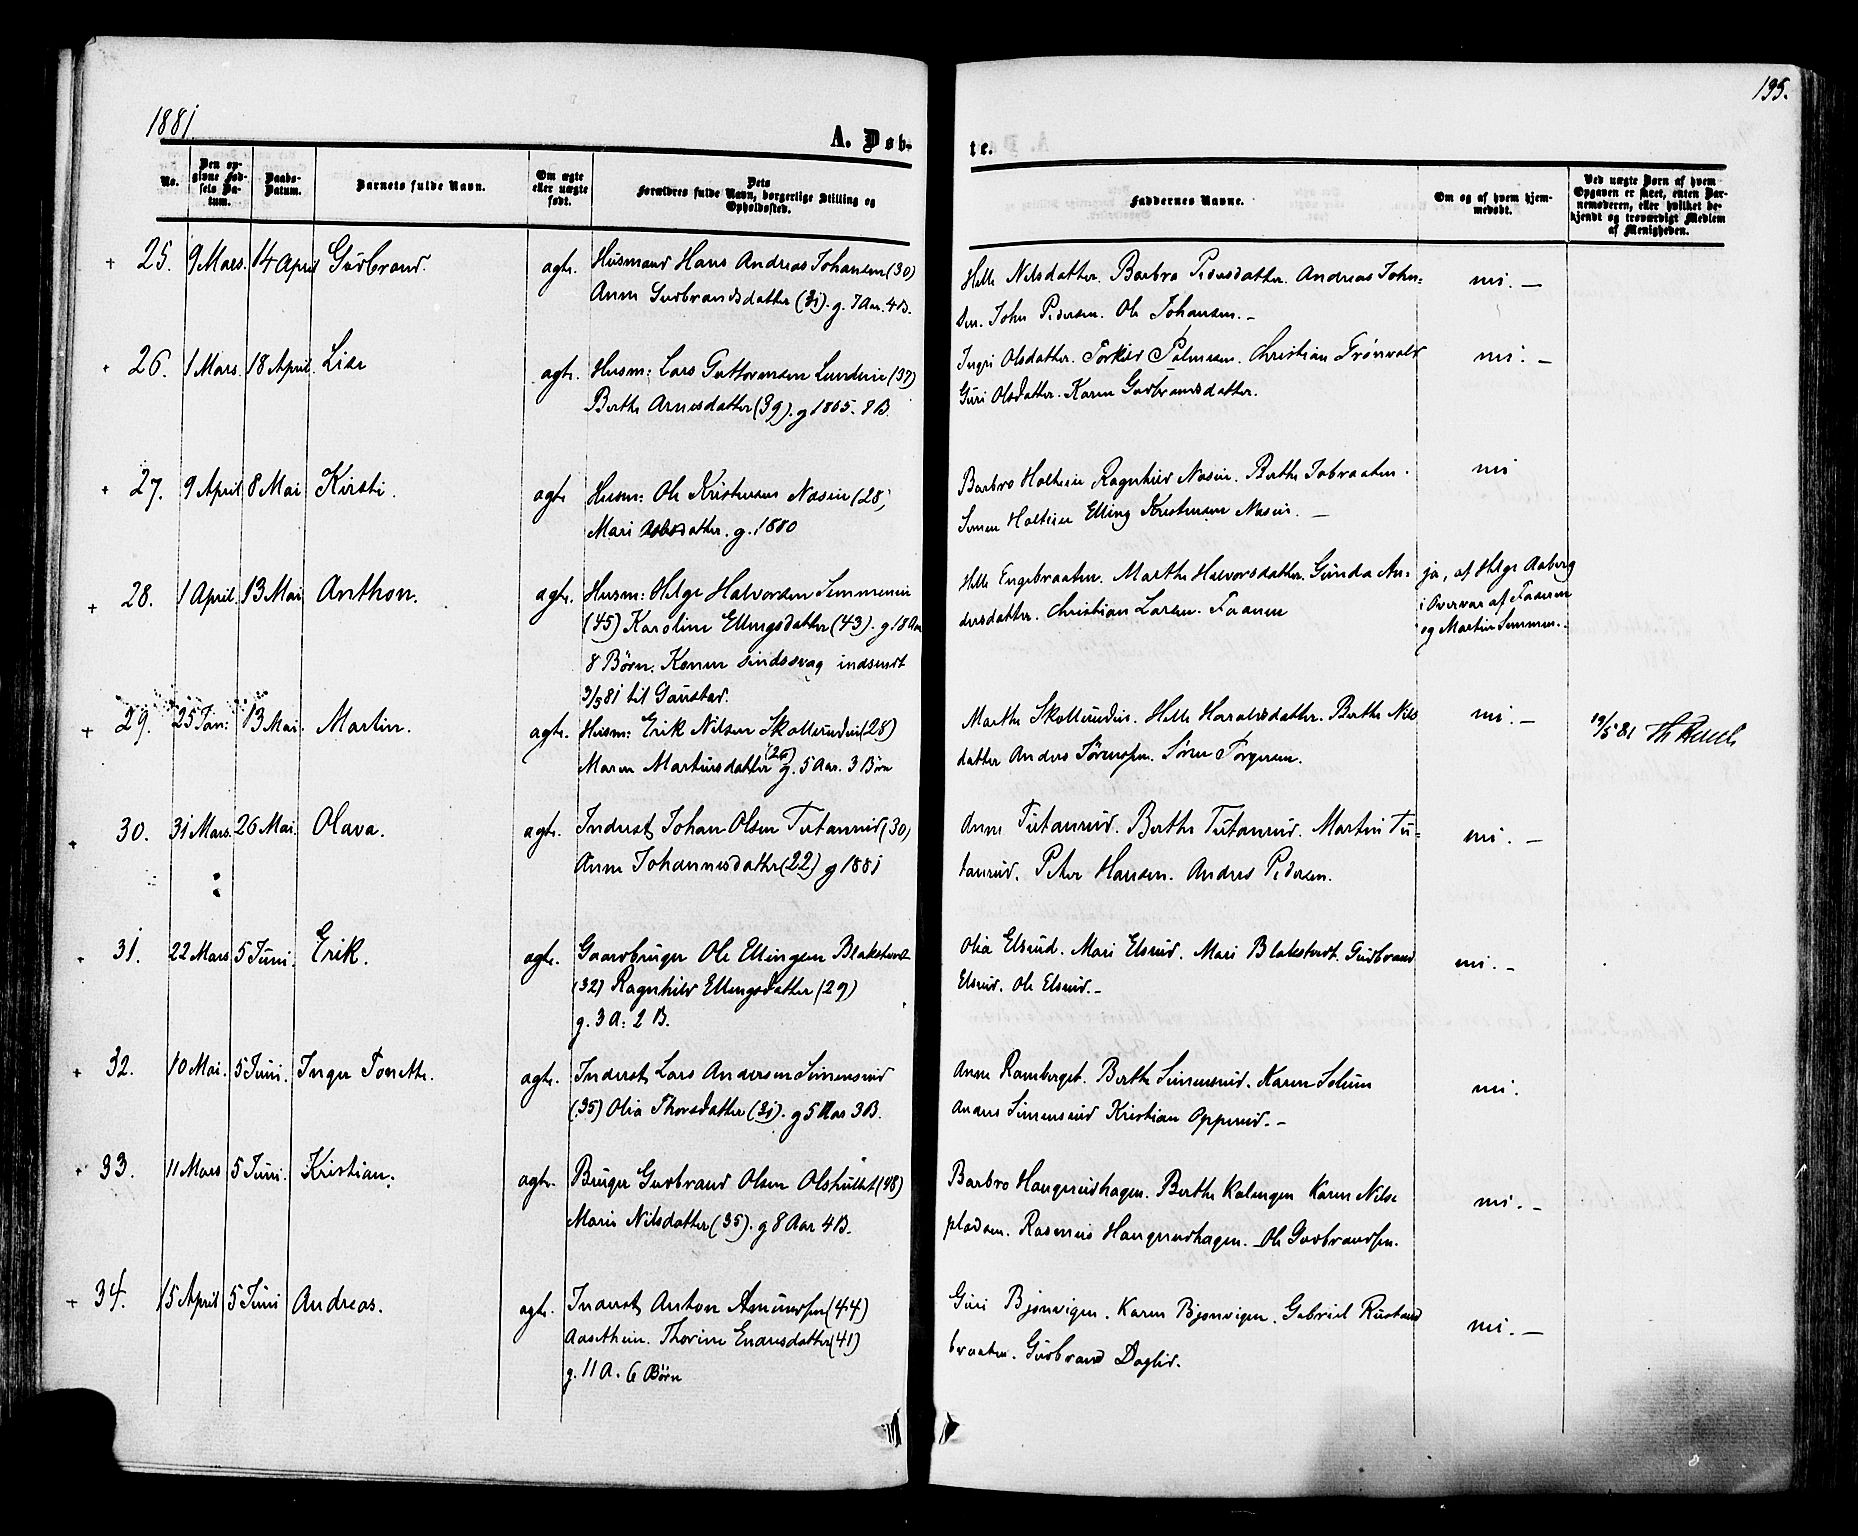 1881.
195.
A. Døb-
te.
No.
Den op-
givne Fød-
sels Da-
tum.
Daabs-
Datum.
Barnets fulde Navn.
Om ægte
eller uægte
født.
Dets
Forældres fulde Navn, borgerlige Stilling og
Opholdssted.
Faddernes Navne.
Om og af hvem hjem-
medøbt.
Ved uægte Børn af hvem
Opgaven er skeet, enten Bar-
nemoderen, eller hvilket be-
kjendt og troværdigt Medlem
af Menigheden.
+ 25. 9 Mars. 14 April Gudbrand. ægte. Husmand Hans Andreas Johansen (30)
Anne Gudbrandsdatter (31). g. 7 Aar. 4 B.
Helle Nilsdatter. Barbro Pedersdatter. Andreas John-
sen. John Pedersen. Ole Johansen. –
nei. –
+ 26. 1 Mars. 18 April. Lise ægte. Husm: Lars Guttormsen Lundeie (37)
Berthe Arnesdatter (39). g 1865. 8 B.
Ingri Olsdatter. Torkild Palmesen. Christian Trønvold
Guri Olsdatter. Karen Gudbrandsdatter.
nei. –
+ 27. 9 April 8 Mai Kirsti. ægte Husm: Ole Kristensen Næseie (28)
Mari datter. g. 1880
Barbro Holteie Ragnhild Næseie. Berthe Jobraaten.
Simen Holteie Elling Kristensen Næseie. –
nei
+ 28. 1 April. 13 Mai Anthon. ægte. Husm: Helge Halvorsen Simmeneie
(45) Karoline Ellingsdatter (43). g. 18 Aar
8 Børn. Konen sindssvag indsendt
3/5 81 til Gaustad.
Helle Engebraaten. Marthe Halvorsdatter. Gunda An-
dersdatter. Christian Larsen. Faderen
ja, af Helge Aaberg
i Overvær af Faderen
og Martin Simmen.
+ 29. 25 Jan: 13 Mai. Martin. ægte. Husm: Erik Nilsen Skollerudeie (28)
Maren Martinsdatter (26) g. 5 Aar. 3 Børn
Marthe Skollerudeie. Helle Haraldsdatter. Berthe Nils
datter Anders Sørenssen. Søren Torgersen.
nei. –
19/5 81
+ 30. 31 Mars. 26 Mai. Olava. ægte. Inderst Johan Olsen Tutanrud (30)
Anne Johannesdatter (22) g 1881
Anne Tutanrud. Berthe Tutanrud. Martin Tu-
tanrud. Peter Hansen. Anders Pedersen.
nei. –
+ 31. 22 Mars 5 Juni. Erik. ægte. Gaardbruger Ole Ellingsen Blakstvedt
(32) Ragnhild Ellingsdatter (29)
g. 3 A: 2 B.
Olia Elsrud. Mari Elsrud. Mari Blakstvedt. Gudbrand
Elsrud. Ole Elsrud. –
nei. –
+ 32. 10 Mai. 5 Juni. Inger Tonette. ægte. Inderst Lars Andersen Simensrud
(35) Olia Thorsdatter (31). g 5 Aar 3 B.
Anne Ramberget. Berthe Simensrud. Karen Solum
Anders Simensrud Kristian Opperud. –
nei.
+ 33. 11 Mars 5 Juni. Kristian. ægte. Bruger Gudbrand Olsen Olshullet (48)
Marie Nilsdatter (35). g 8 Aar 4 B.
Barbro Haugerudhagen. Berthe Kolengen Karen Nilse
pladsen. Rasmus Haugerudhagen. Ole Gudbrandsen.
nei. –
+ 34. 15 April 5 Juni Andreas. ægte. Inderst Anton Amundsen (44)
Aasetheie. Thorine Enaresdatter (41)
g. 11 A. 6 Børn
Guri Bjonvigen. Karen Bjonvigen. Gabriel Rustand
braaten. Gudbrand Daglid.
nei. –